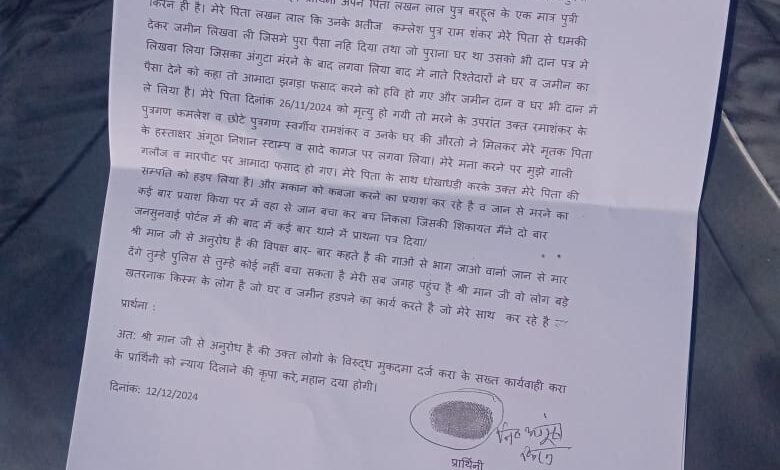 किरन ही है। मेरे पिता लखन लाल कि उनके भतीज कम्लेश पुत्र राम शंकर मेरे पिता से धमकी
अपने पिता लखन लाल पुत्र बरहूल के एक मात्र पुत्री
देकर जमीन लिखवा ली जिसमे पुरा पैसा नहि दिया तथा जो पुराना घर था उसको भी दान पत्र मे
लिखवा लिया जिसका अंगुटा मंरने के बाद लगवा लिया बाद मे नाते रिश्तेदारों ने घर व जमीन का
पैसा देने को कहा तो आमादा झगड़ा फसाद करने को हवि हो गए और जमीन दान व घर भी दान में
ले लिया है। मेरे पिता दिनांक 26/11/2024 को मृत्यु हो गयी तो मरने के उपरांत उक्त रमाशंकर के
पुत्रगण कमलेश व छोटे पुत्रगण स्वर्गीय रामशंकर व उनके घर की औरतो ने मिलकर मेरे मृतक पिता
के हस्ताक्षर अंगूठा निशान स्टाम्प व सादे कागज पर लगवा लिया। मेरे मना करने पर मुझे गाली
गलौज व मारपीट पर आमादा फसाद हो गए। मेरे पिता के साथ धोखाधड़ी करके उक्त मेरे पिता की
सम्पति को हड़प लिया है। और मकान को कबजा करने का प्रयाश कर रहे है व जान से मरने का
कई बार प्रयाश किया पर में वहा से जान बचा कर बच निकला जिसकी शिकायत मैंने दो बार
जनसुनवाई पोर्टल में की बाद में कई बार थाने में प्राथना पत्र दिया/
श्री मान जी से अनुरोध है की विपक्ष बार- बार कहते है की गाओं से भाग जाओ वार्ना जान से मार
देंगे तुम्हे पुलिस से तुम्हे कोई नहीं बचा सकता है मेरी सब जगह पहुंच है श्री मान जी वो लोग बड़े
खतरनाक किस्म के लोग है जो घर व जमीन हडपने का कार्य करते है जो मेरे साथ कर रहे है
प्रार्थना :
अतः श्री मान जी से अनुरोध है की उक्त लोगो के विरुद्ध मुकदमा दर्ज करा के सख्त कार्यवाही करा
के प्रार्थिनी को न्याय दिलाने की कृपा करे, महान दया होगी।
दिनांक: 12/12/2024
प्रार्थिनी